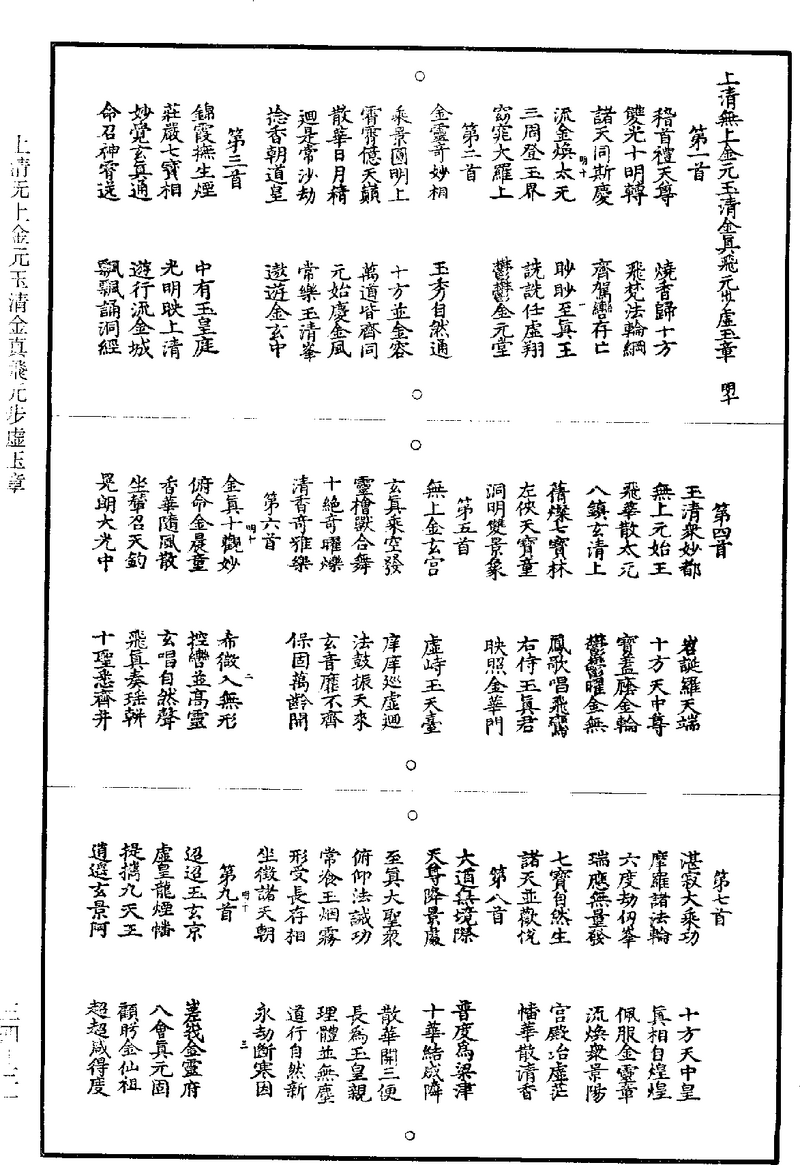 上清無上金元玉清金真飛元步虛玉章 明十
第一首
稽首禮天尊 燒香歸十方
雙光十明轉 飛梵法輪綱
諸天同斯慶 齊駕轡存亡
流金煥太无 眇眇至真王
三周登玉界 詵詵任虛翔
窈窕大羅上 鬱鬱金元堂
第二首
金靈奇妙相 玉秀自然通
乘景圓明上 十方並金容
霄霄億天顛 萬道皆齊同
散華日月精 元始慶金風
迴是常沙劫 常樂玉清峯
捻香朝道皇 遨遊金玄中
第三首
錦霞撫生煙 中有玉皇庭
莊嚴七寶相 光明映上清
妙覺玄真通 遊行流金城
命召神霄送 飄飄誦洞經
第四首
玉清眾妙都 岧誕羅天端
無上元始王 十方天中尊
飛華散太元 寶蓋蔭金輪
八鎮玄清上 鬱鬱曜金無
蒨㩧七寶林 鳳歌唱飛鸞
左俠天寶童 右侍玉真君
洞明雙景象 映照金華門
第五首
無上金玄宮 虛峙玉天臺
玄真乘空發 庠庠巡虛迴
靈檜獸合舞 法鼓振天來
十絕奇曜爍 玄音靡不齊
清香奇雅樂 保固萬齡開
第六首
金真十觀妙 希微入無形
俯命金晨童 控轡並高靈
香華隨風散 玄唱自然聲
坐輦召天鈞 飛真奏瑤軿
晃朗大光中 十聖悉齊并
第七首
湛寂大乘功 十方天中皇
摩羅諸法輪 真相自煌煌
六度劫仞峯 佩服金靈章
瑞應無量發 流煥眾景陽
七寶自然生 宮殿冶虛茫
諸天並歡悅 幡華散清香
第八首
大道無境際 普度為梁津
天尊降景處 十華結成隣
至真大聖眾 散華開三便
俯仰法誠功 長為玉皇親
常飡玉烟霧 理體並無塵
形受長存相 道行自然新
坐徵諸天朝 永劫斷寒因
第九首
迢迢玉玄京 嵳峩金靈府
虛皇龍煙幡 八會真元固
提攜九天王 顧盻金仙祖
逍遥玄景阿 超超咸得度
上清无上金元玉清金真飛元步虛玉章